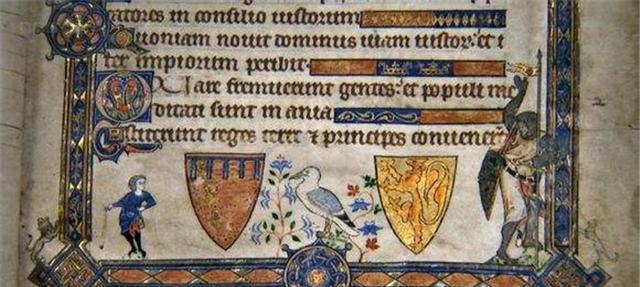 catores in consilio iustorum
Quoniam nouit dominus uiam iustor: et i
ter impiorum peribit.
Quare fremuerunt gentes: et populi me
ditati sunt in ania
Astiterunt reges terre & principes conuener